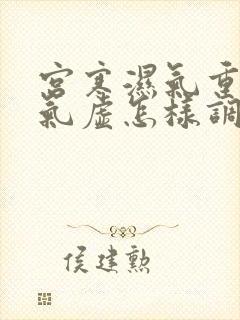 宮寒濕氣重
氣虛怎樣調
侯建勲